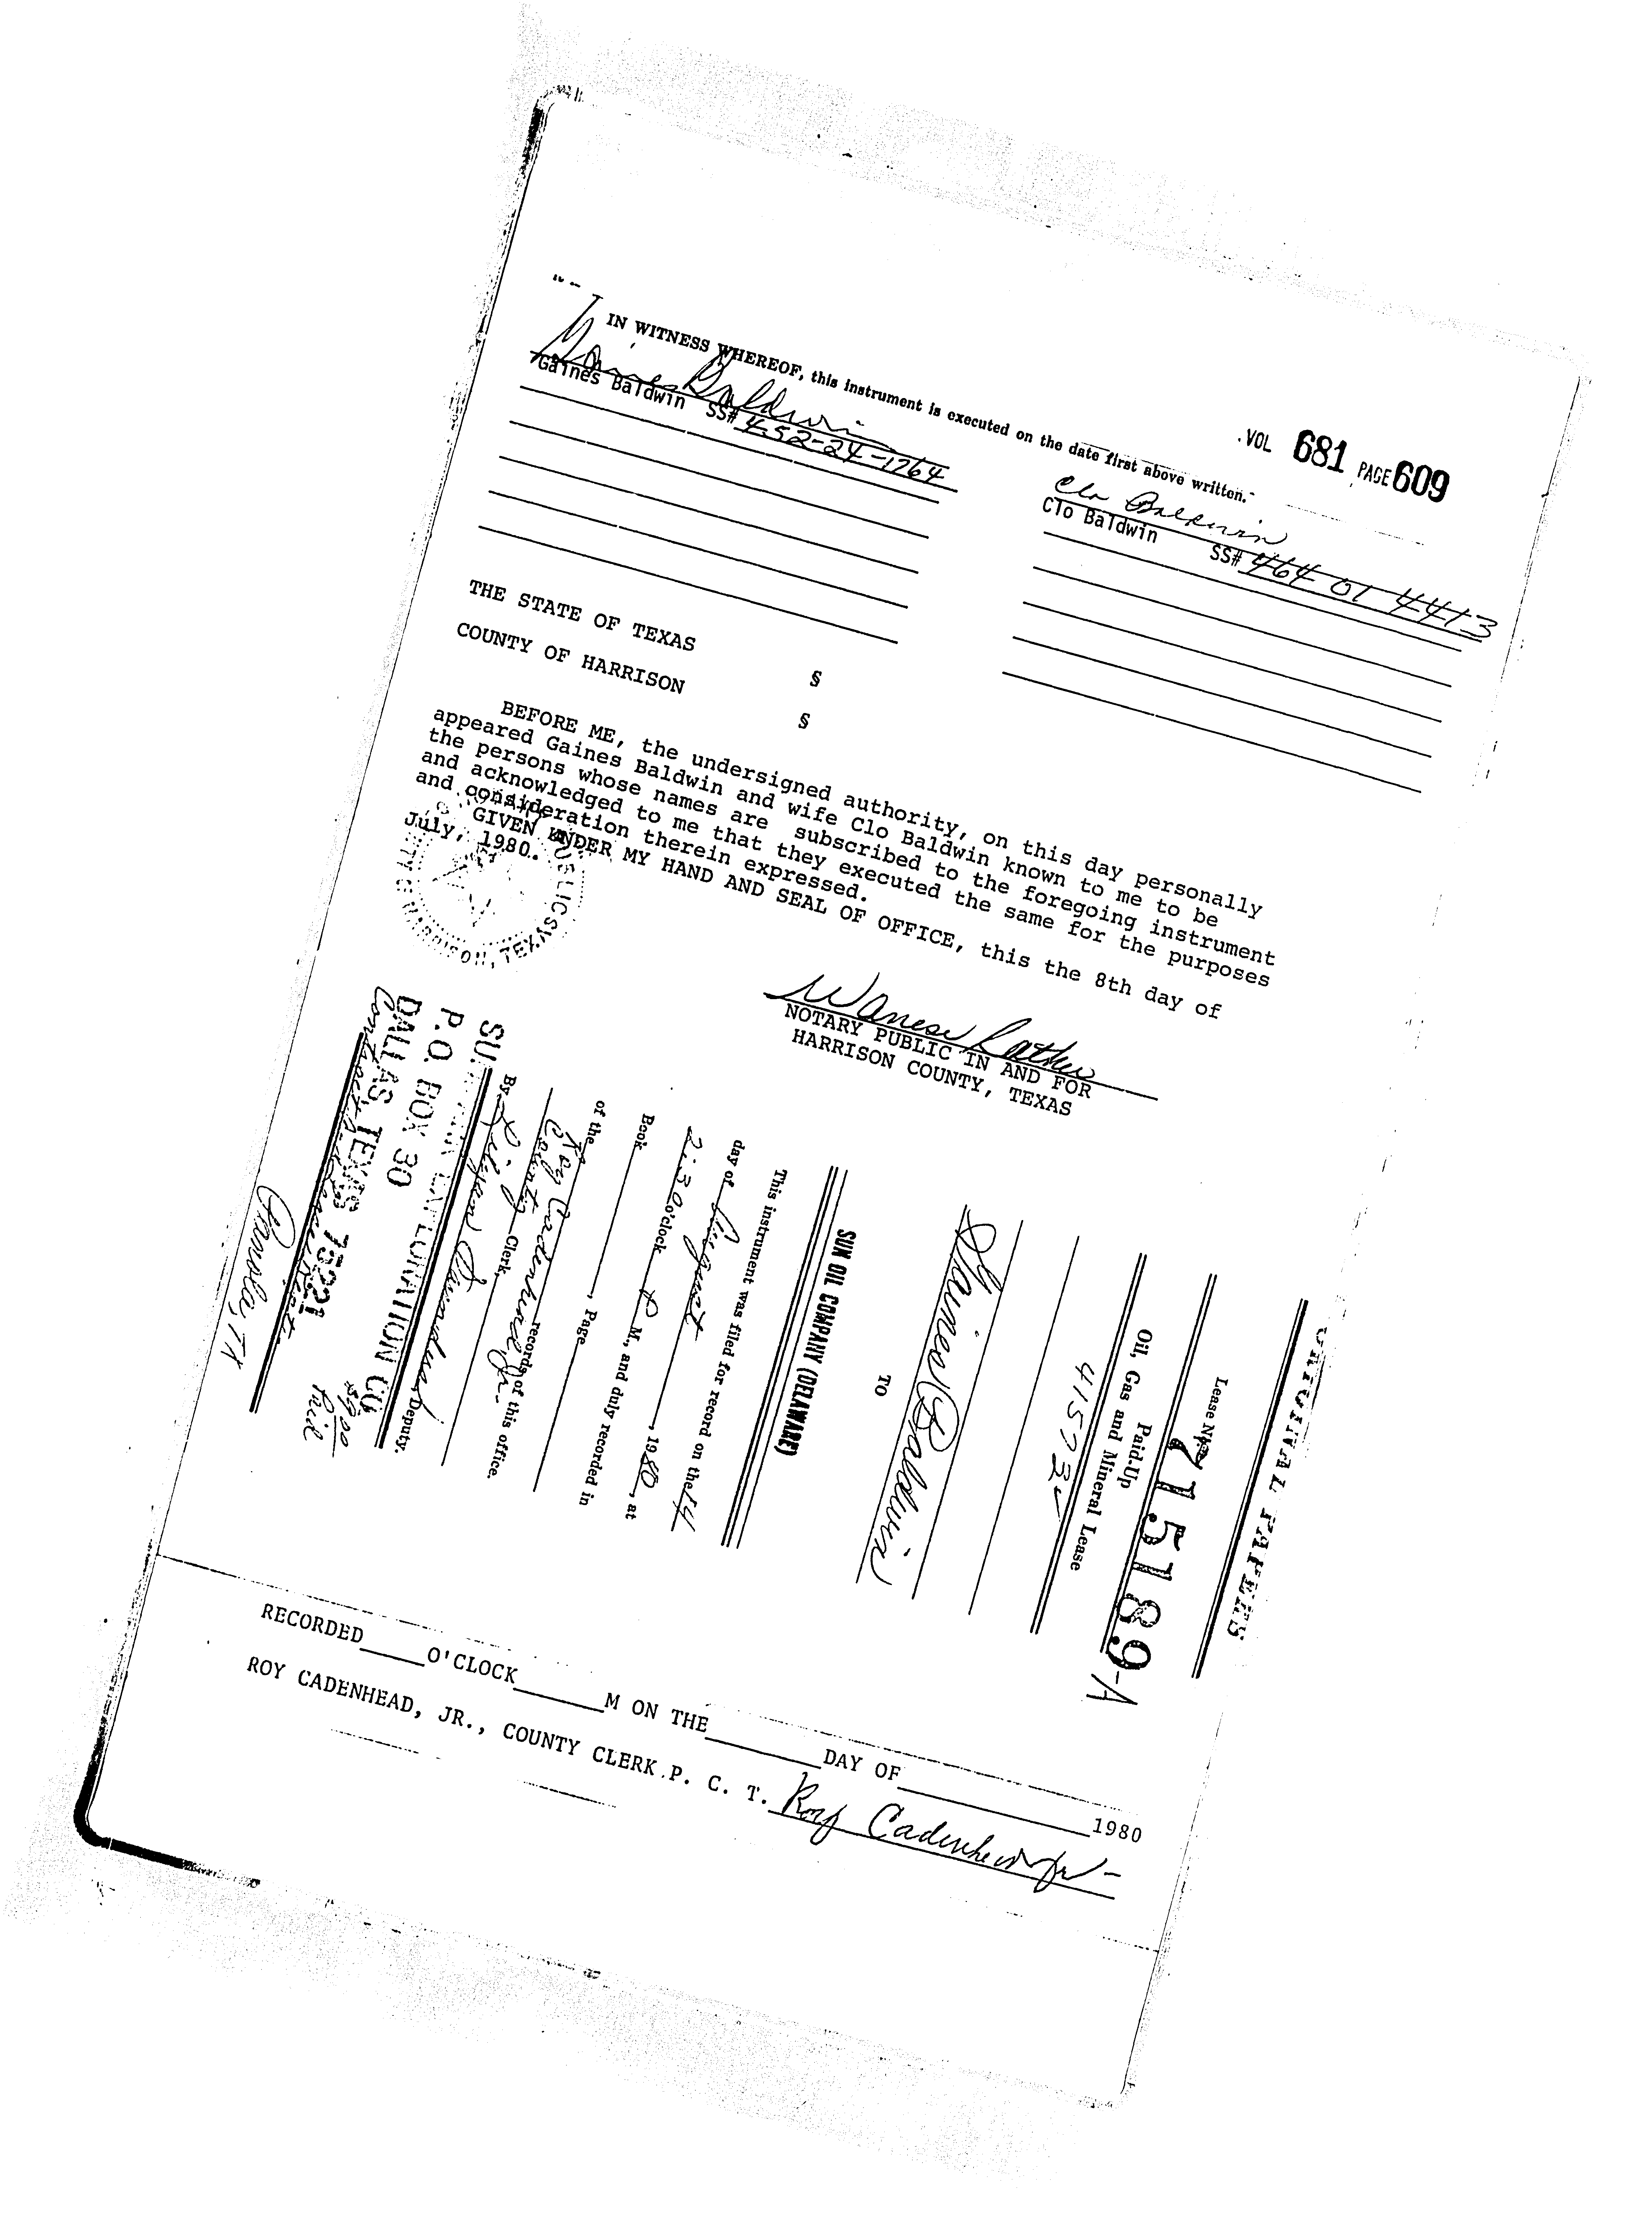 VOL 681 PAGE 609
IN WITNESS WHEREOF, this instrument is executed on the date first above written.
Gaines Baldwin
Gaines Baldwin SS# 452-24-1264
Clo Baldwin
Clo Baldwin SS# 464 01 4413
THE STATE OF TEXAS §
COUNTY OF HARRISON §
BEFORE ME, the undersigned authority, on this day personally
appeared Gaines Baldwin and wife Clo Baldwin known to me to be
the persons whose names are subscribed to the foregoing instrument
and acknowledged to me that they executed the same for the purposes
and consideration therein expressed.
GIVEN UNDER MY HAND AND SEAL OF OFFICE, this the 8th day of
July, 1980.
NOTARY PUBLIC IN AND FOR
HARRISON COUNTY, TEXAS
ORIGINAL PAPERS
Lease No.
715189-A
Paid-Up
Oil, Gas and Mineral Lease
41573
Gaines Baldwin
TO
SUN OIL COMPANY (DELAWARE)
This instrument was filed for record on the 14
day of August, 1980, at
2:30 o'clock P M., and duly recorded in
Book , Page
of the records of this office.
Roy Cadenhead Jr.
County Clerk,
By Deputy.
EXPLORATION CO
P.O. BOX 30
DALLAS, TEXAS 75221
Contract & Lease Dept.
TX
Paid
RECORDED O'CLOCK M ON THE DAY OF 1980
ROY CADENHEAD, JR., COUNTY CLERK P. C. T. Roy Cadenhead Jr